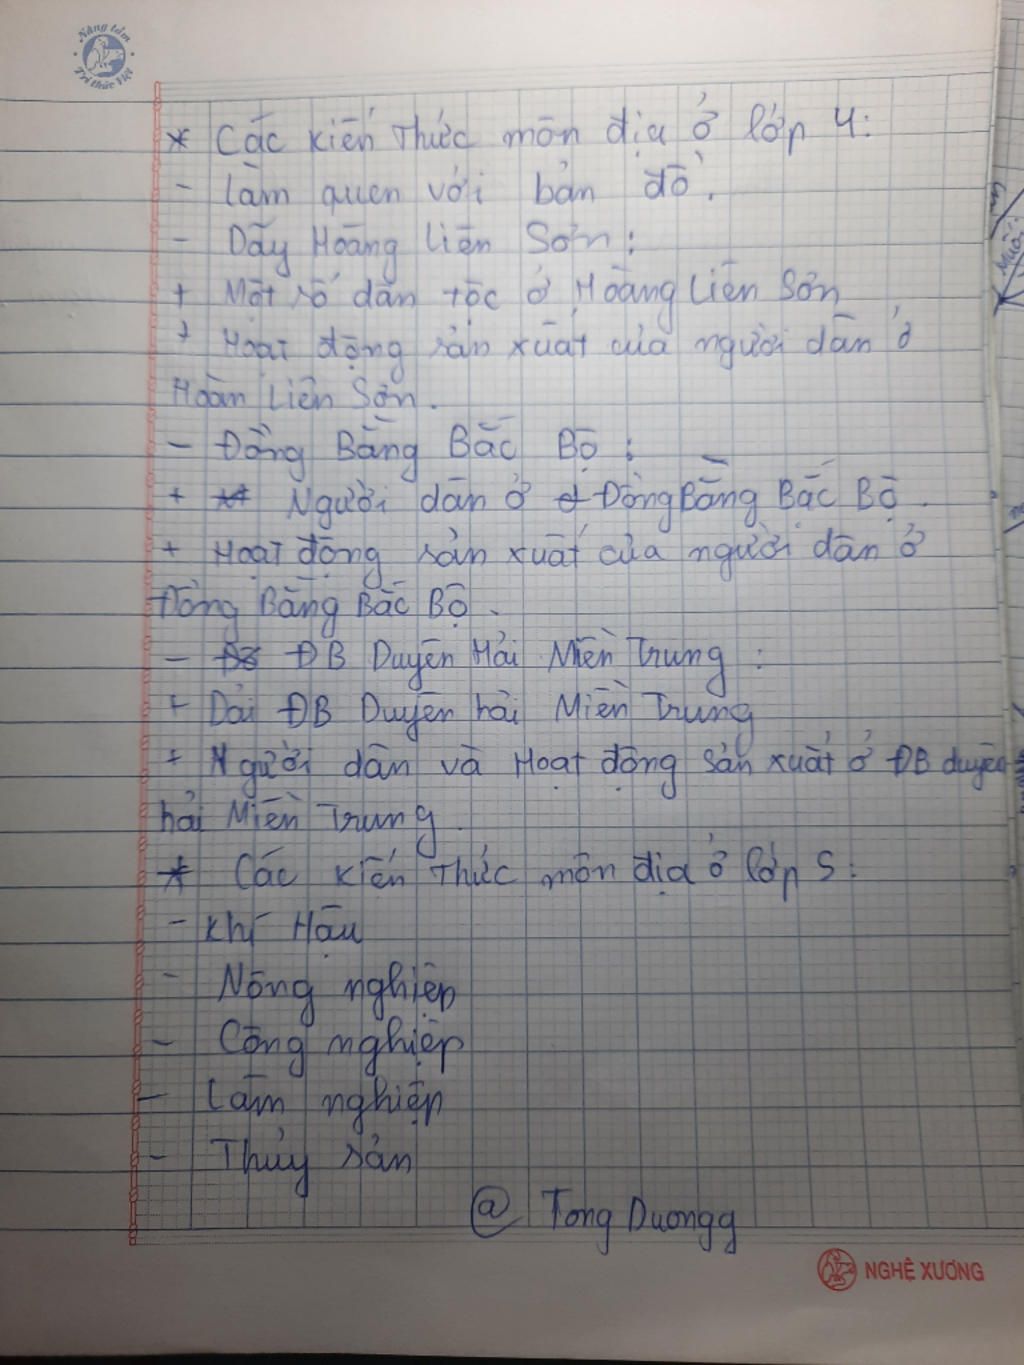 Nâng tầm
Tri thức Việt
* Các kiến thức môn địa ở lớp 4:
- làm quen với bản đồ.
- Dãy Hoàng Liên Sơn:
+ Một số dân tộc ở Hoàng Liên Sơn
+ Hoạt động sản xuất của người dân ở
Hoàn Liên Sơn.
- Đồng Bằng Bắc Bộ:
+ Người dân ở Đồng Bằng Bắc Bộ.
+ Hoạt động sản xuất của người dân ở
Đồng Bằng Bắc Bộ.
- ĐB Duyên Hải Miền Trung:
+ Dải ĐB Duyên hải Miền Trung
+ Người dân và Hoạt động sản xuất ở ĐB duyên
hải Miền Trung.
* Các kiến thức môn địa ở lớp 5:
- Khí Hậu
- Nông nghiệp
- Công nghiệp
- Lâm nghiệp
- Thủy sản
@ Tong Duongg
NGHỆ XƯƠNG